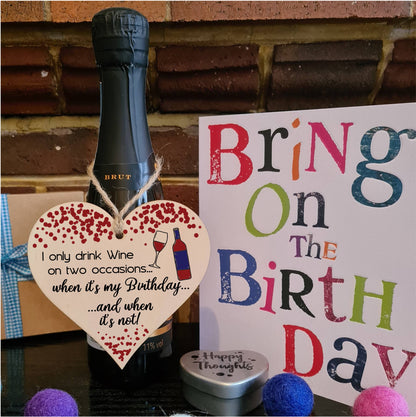 BRUT
I only drink Wine
on two occasions...
when it's my Birthday...
...and when
it's not!
11%vol
Bring
On
The
Birth
Day
Happy
Thoughts